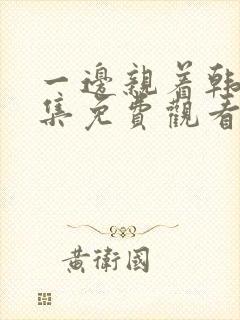 一邊親着韩
集免費觀看
黃衛國